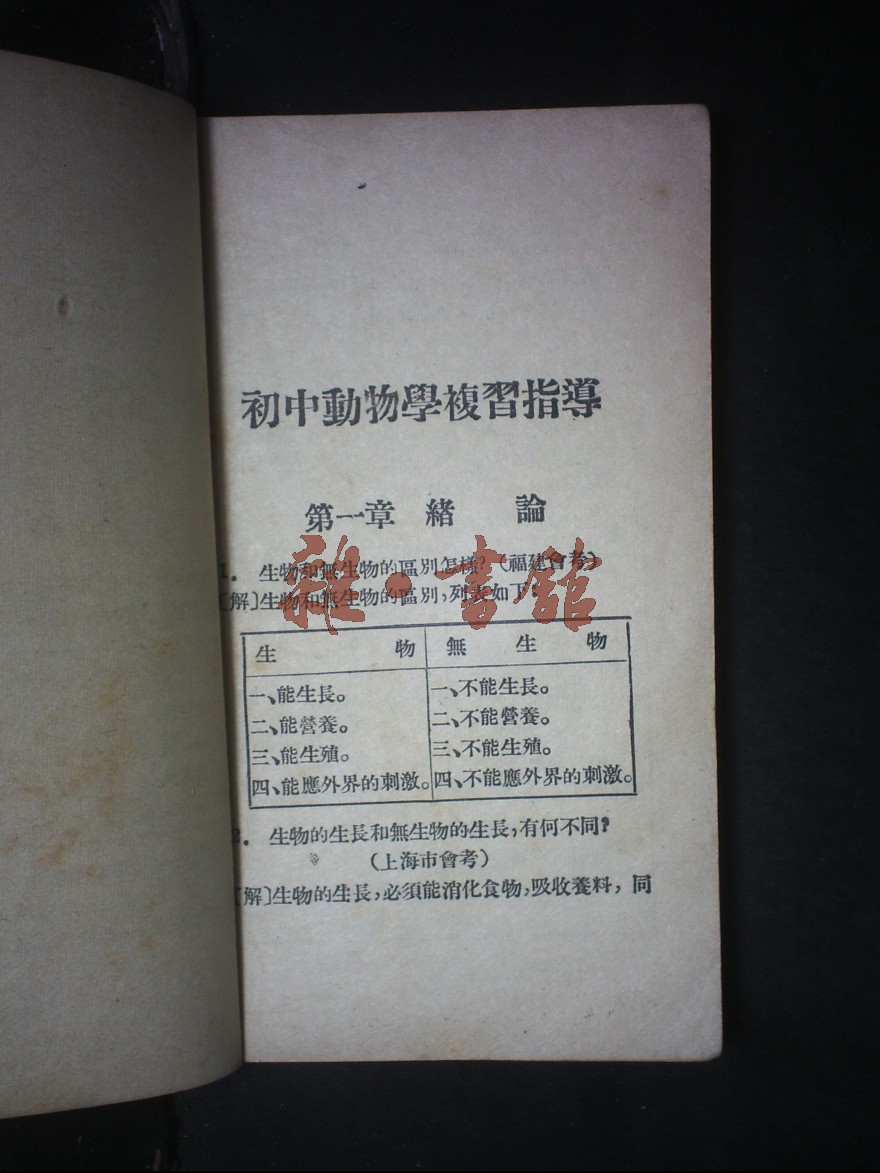 初中動物學複習指導
第一章 緒 論
1. 生物和無生物的區別怎樣?(福建會考)
〔解〕生物和無生物的區別,列表如下:
生 物 無 生 物
一、能生長。 一、不能生長。
二、能營養。 二、不能營養。
三、能生殖。 三、不能生殖。
四、能應外界的刺激。 四、不能應外界的刺激。
2. 生物的生長和無生物的生長,有何不同?
(上海市會考)
〔解〕生物的生長,必須能消化食物,吸收養料,同
雜·書館